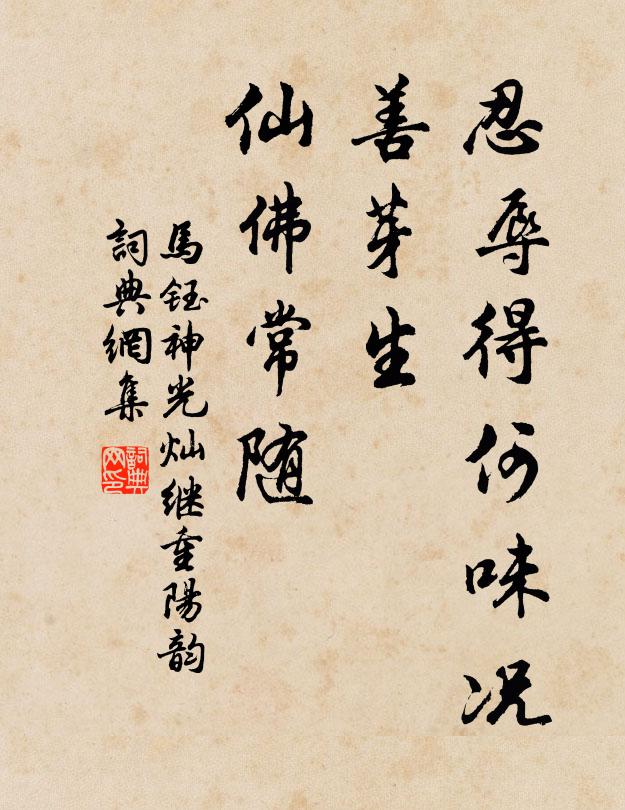 忍辱得何味况
善芽生
仙佛常随
馬钰神光灿继重陽韵
詞典網集
詞典网印